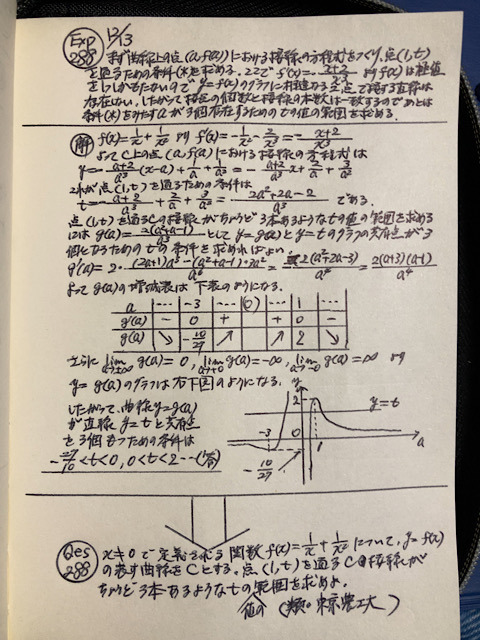 Exp 288 12/13
まず曲線上の点(a, f(a))における接線の方程式をつくり、点(1, t)
を通るための条件(*)を求める。ここで f'(x)=-(x+2)/x³ より f(x)は極値
を1つしかもたないので y=f(x)のグラフに相異なる2点で接する直線は
存在しない。したがって接点の個数と接線の本数は一致するのであとは
条件(*)をみたすaが3個存在するためのtの値の範囲を求める。
解 f(x)=1/x+1/x² より f'(x)=-1/x²-2/x³=-(x+2)/x³
よってC上の点(a, f(a))における接線の方程式は
y=-(a+2)/a³(x-a)+1/a+1/a²=-(a+2)/a³x+2/a+3/a²
これが点(1, t)を通るための条件は
t=-(a+2)/a³+2/a+3/a²=(2a²+2a-2)/a³ である。
点(1, t)を通るCの接線がちょうど3本あるようなtの値の範囲を求める
には g(a)=2(a²+a-1)/a³ として y=g(a)と y=tのグラフの共有点が3
個となるためのtの条件を求めればよい。
g'(a)=2・((2a+1)a³-(a²+a-1)・3a²)/a⁶=-2(a²+2a-3)/a⁴=-2(a+3)(a-1)/a⁴
よって g(a)の増減表は下表のようになる。
a … -3 … (0) … 1 …
g'(a) - 0 + + 0 -
g(a) ↘ -10/27 ↗ ↗ 2 ↘
さらに lim a→±∞ g(a)=0, lim a→+0 g(a)=-∞, lim a→-0 g(a)=∞ より
y=g(a)のグラフは右下図のようになる。
したがって、曲線y=g(a)
が直線 y=t と共有点
を3個もつための条件は
-27/10<t<0, 0<t<2 …(答)
y
2
y=t
-3
0
1
a
-10/27
Ques 288 x≠0で定義される関数 f(x)=1/x+1/x² について、y=f(x)
の表す曲線をCとする。点(1, t)を通るCの接線が
ちょうど3本あるようなtの値の範囲を求めよ。
(類・東京農工大)